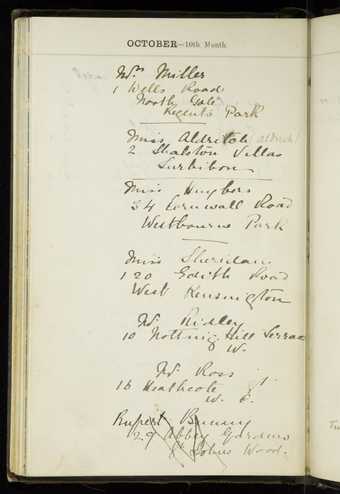 OCTOBER—10th Month
Mrs Miller
1 Wells Road
North Gate
Regents Park
Miss Aldritch aldrich!
2 Shalston Villas
Surbiton
Miss Huybers
34 Cornwall Road
Westbourne Park
Miss Sheridan
120 Edith Road
West Kensington
W. Ridley
10 Notting Hill Terrace
W.
W. Ross
16 Heathcote St.
W. C.
Rupert Bunny
29 Abbey Gardens
St Johns Wood.